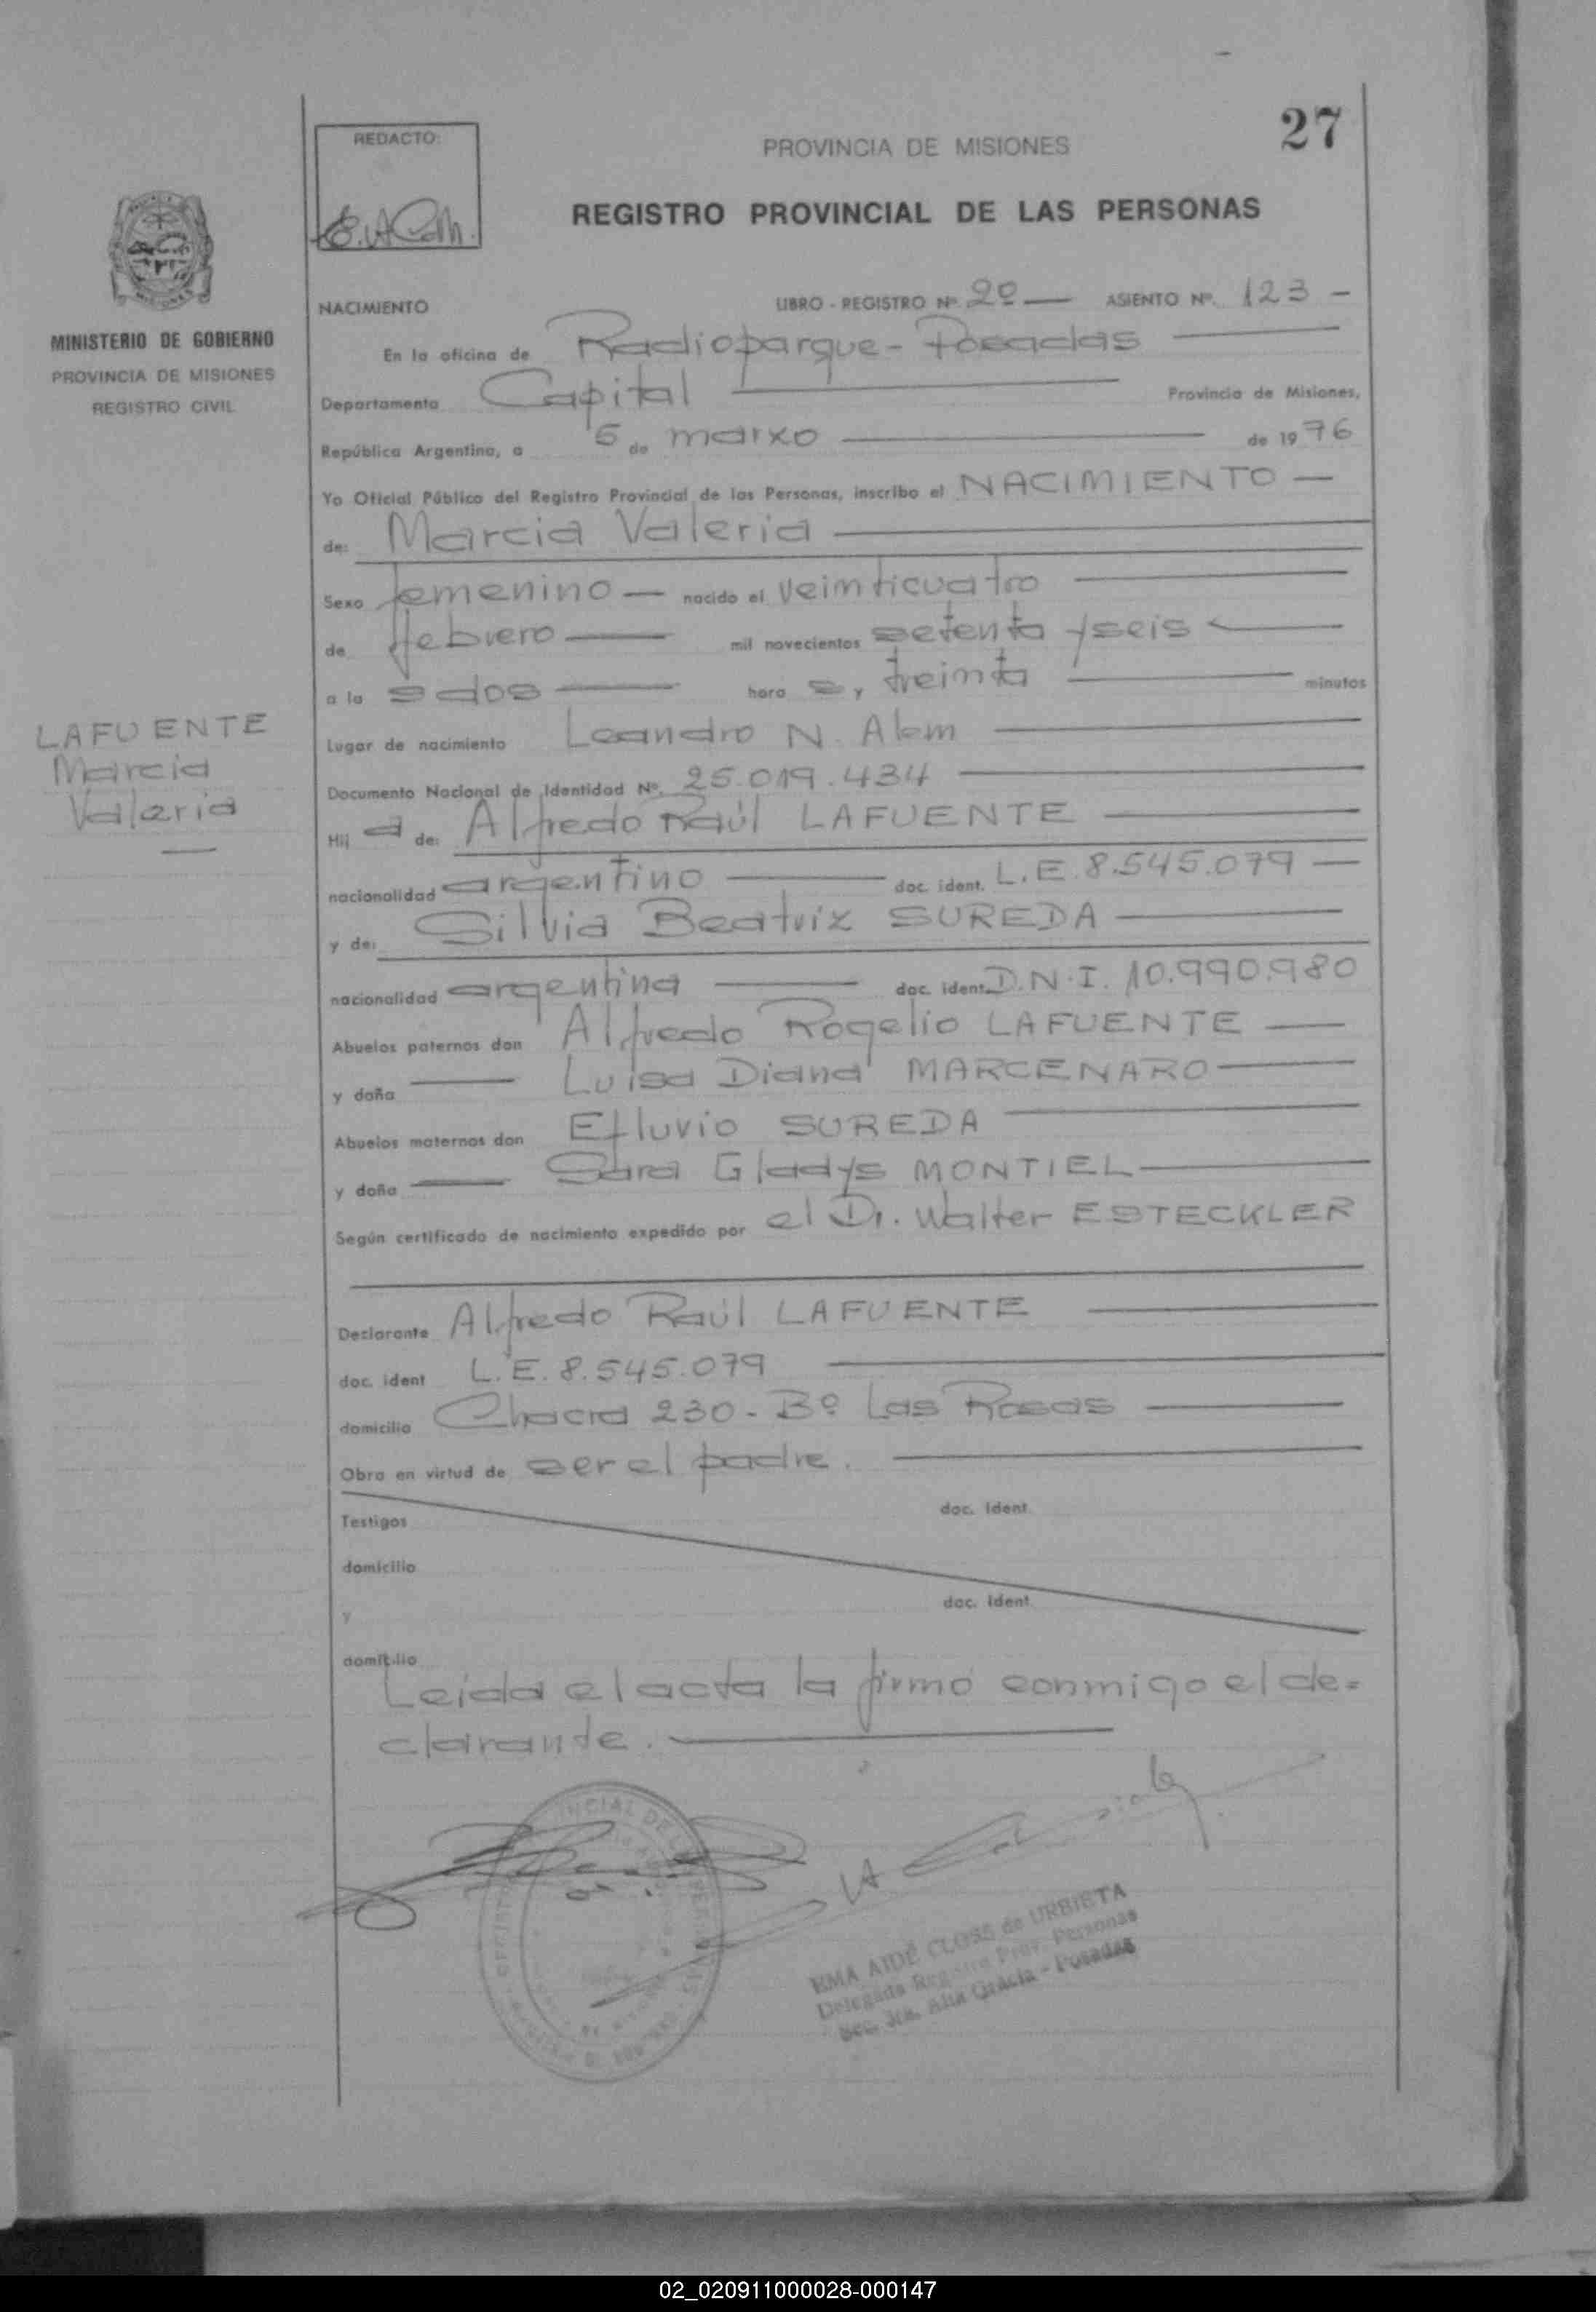 27
REDACTO:
PROVINCIA DE MISIONES
REGISTRO PROVINCIAL DE LAS PERSONAS
MINISTERIO DE GOBIERNO
PROVINCIA DE MISIONES
REGISTRO CIVIL
NACIMIENTO LIBRO - REGISTRO Nº. 2º — ASIENTO Nº. 123 —
En la oficina de Radioparque - Posadas
Departamento Capital Provincia de Misiones,
República Argentina, a 5 de marzo de 1976
Yo Oficial Público del Registro Provincial de las Personas, inscribo el NACIMIENTO —
de: Marcia Valeria
Sexo femenino — nacido el veinticuatro
de febrero — mil novecientos setenta y seis
a la s dos — hora s y treinta minutos
LAFUENTE
Marcia
Valeria
Lugar de nacimiento Leandro N. Alem
Documento Nacional de Identidad Nº. 25.019.434
Hij a de: Alfredo Raúl LAFUENTE
nacionalidad argentino doc. ident. L.E. 8.545.079 —
y de: Silvia Beatriz SUREDA
nacionalidad argentina doc. ident. D.N.I. 10.990.980
Abuelos paternos don Alfredo Rogelio LAFUENTE
y doña Luisa Diana MARCENARO
Abuelos maternos don Efluvio SUREDA
y doña Sara Gladys MONTIEL
Según certificado de nacimiento expedido por el Dr. Walter ESTECKLER
Declarante Alfredo Raúl LAFUENTE
doc. ident L.E. 8.545.079
domicilio Chacra 230 - Bº Las Rosas
Obra en virtud de ser el padre.
Testigos doc. ident.
domicilio
y doc. ident.
domicilio
Leida el acta la firmó conmigo el de=
clarante.
EMA AIDÉ CLOSS de URBIETA
Delegada Registro Prov. Personas
Sec. 3ra. Alta Gracia - Posadas
02_020911000028-000147